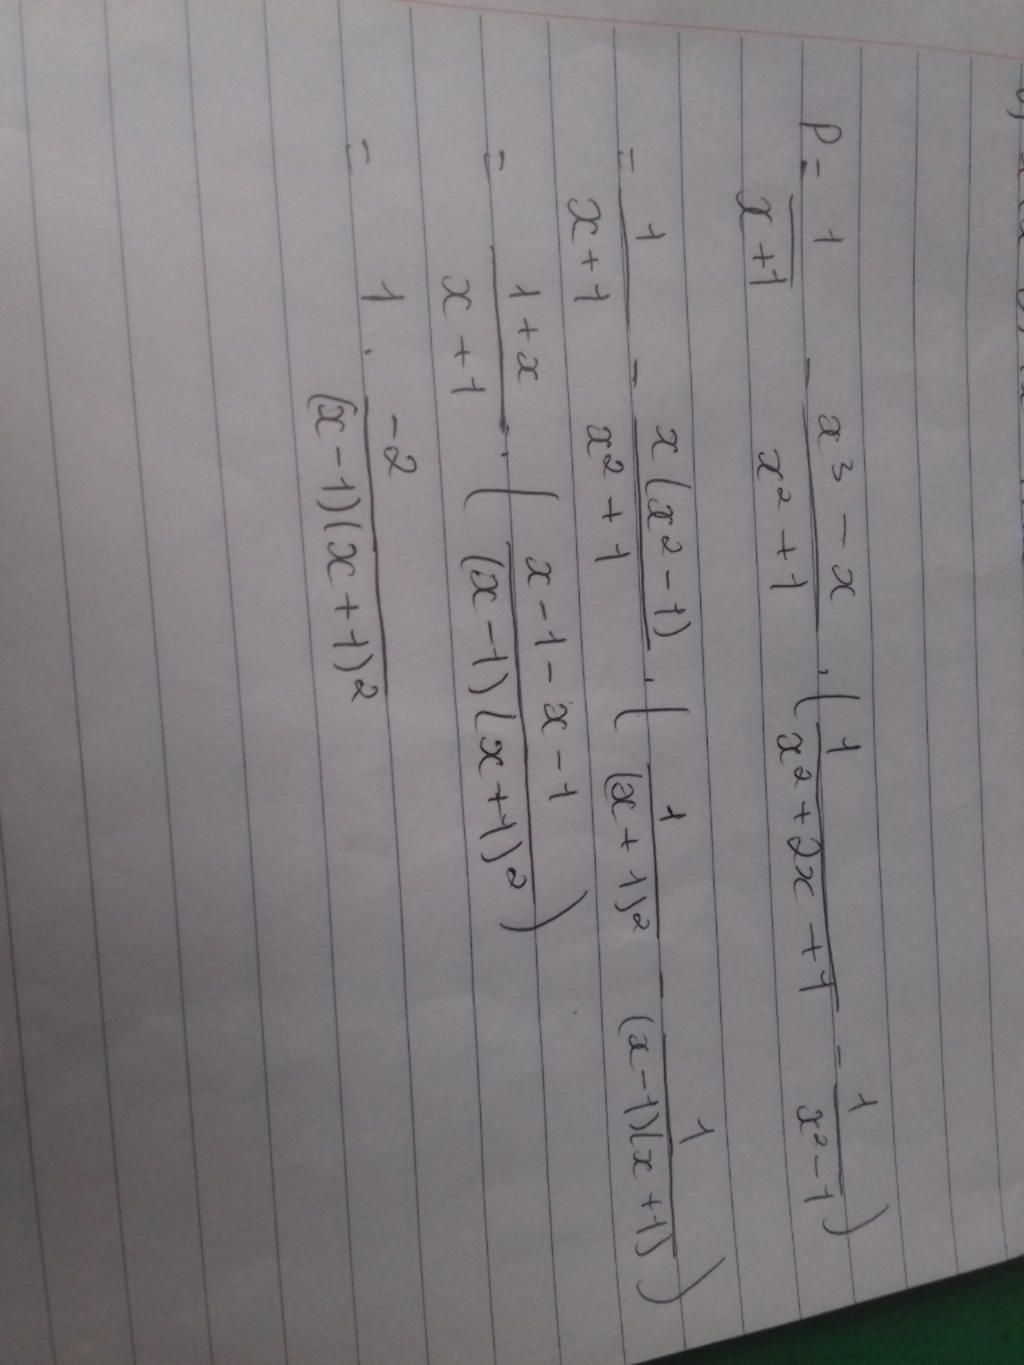 P = 1/(x+1) - (x³ - x)/(x² + 1) . (1/(x² + 2x + 1) - 1/(x² - 1))
= 1/(x+1) - x(x² - 1)/(x² + 1) . (1/(x+1)² - 1/((x-1)(x+1)))
= (1+x)/(x+1) . ((x-1-x-1)/((x-1)(x+1)²))
= 1 . -2/((x-1)(x+1)²)